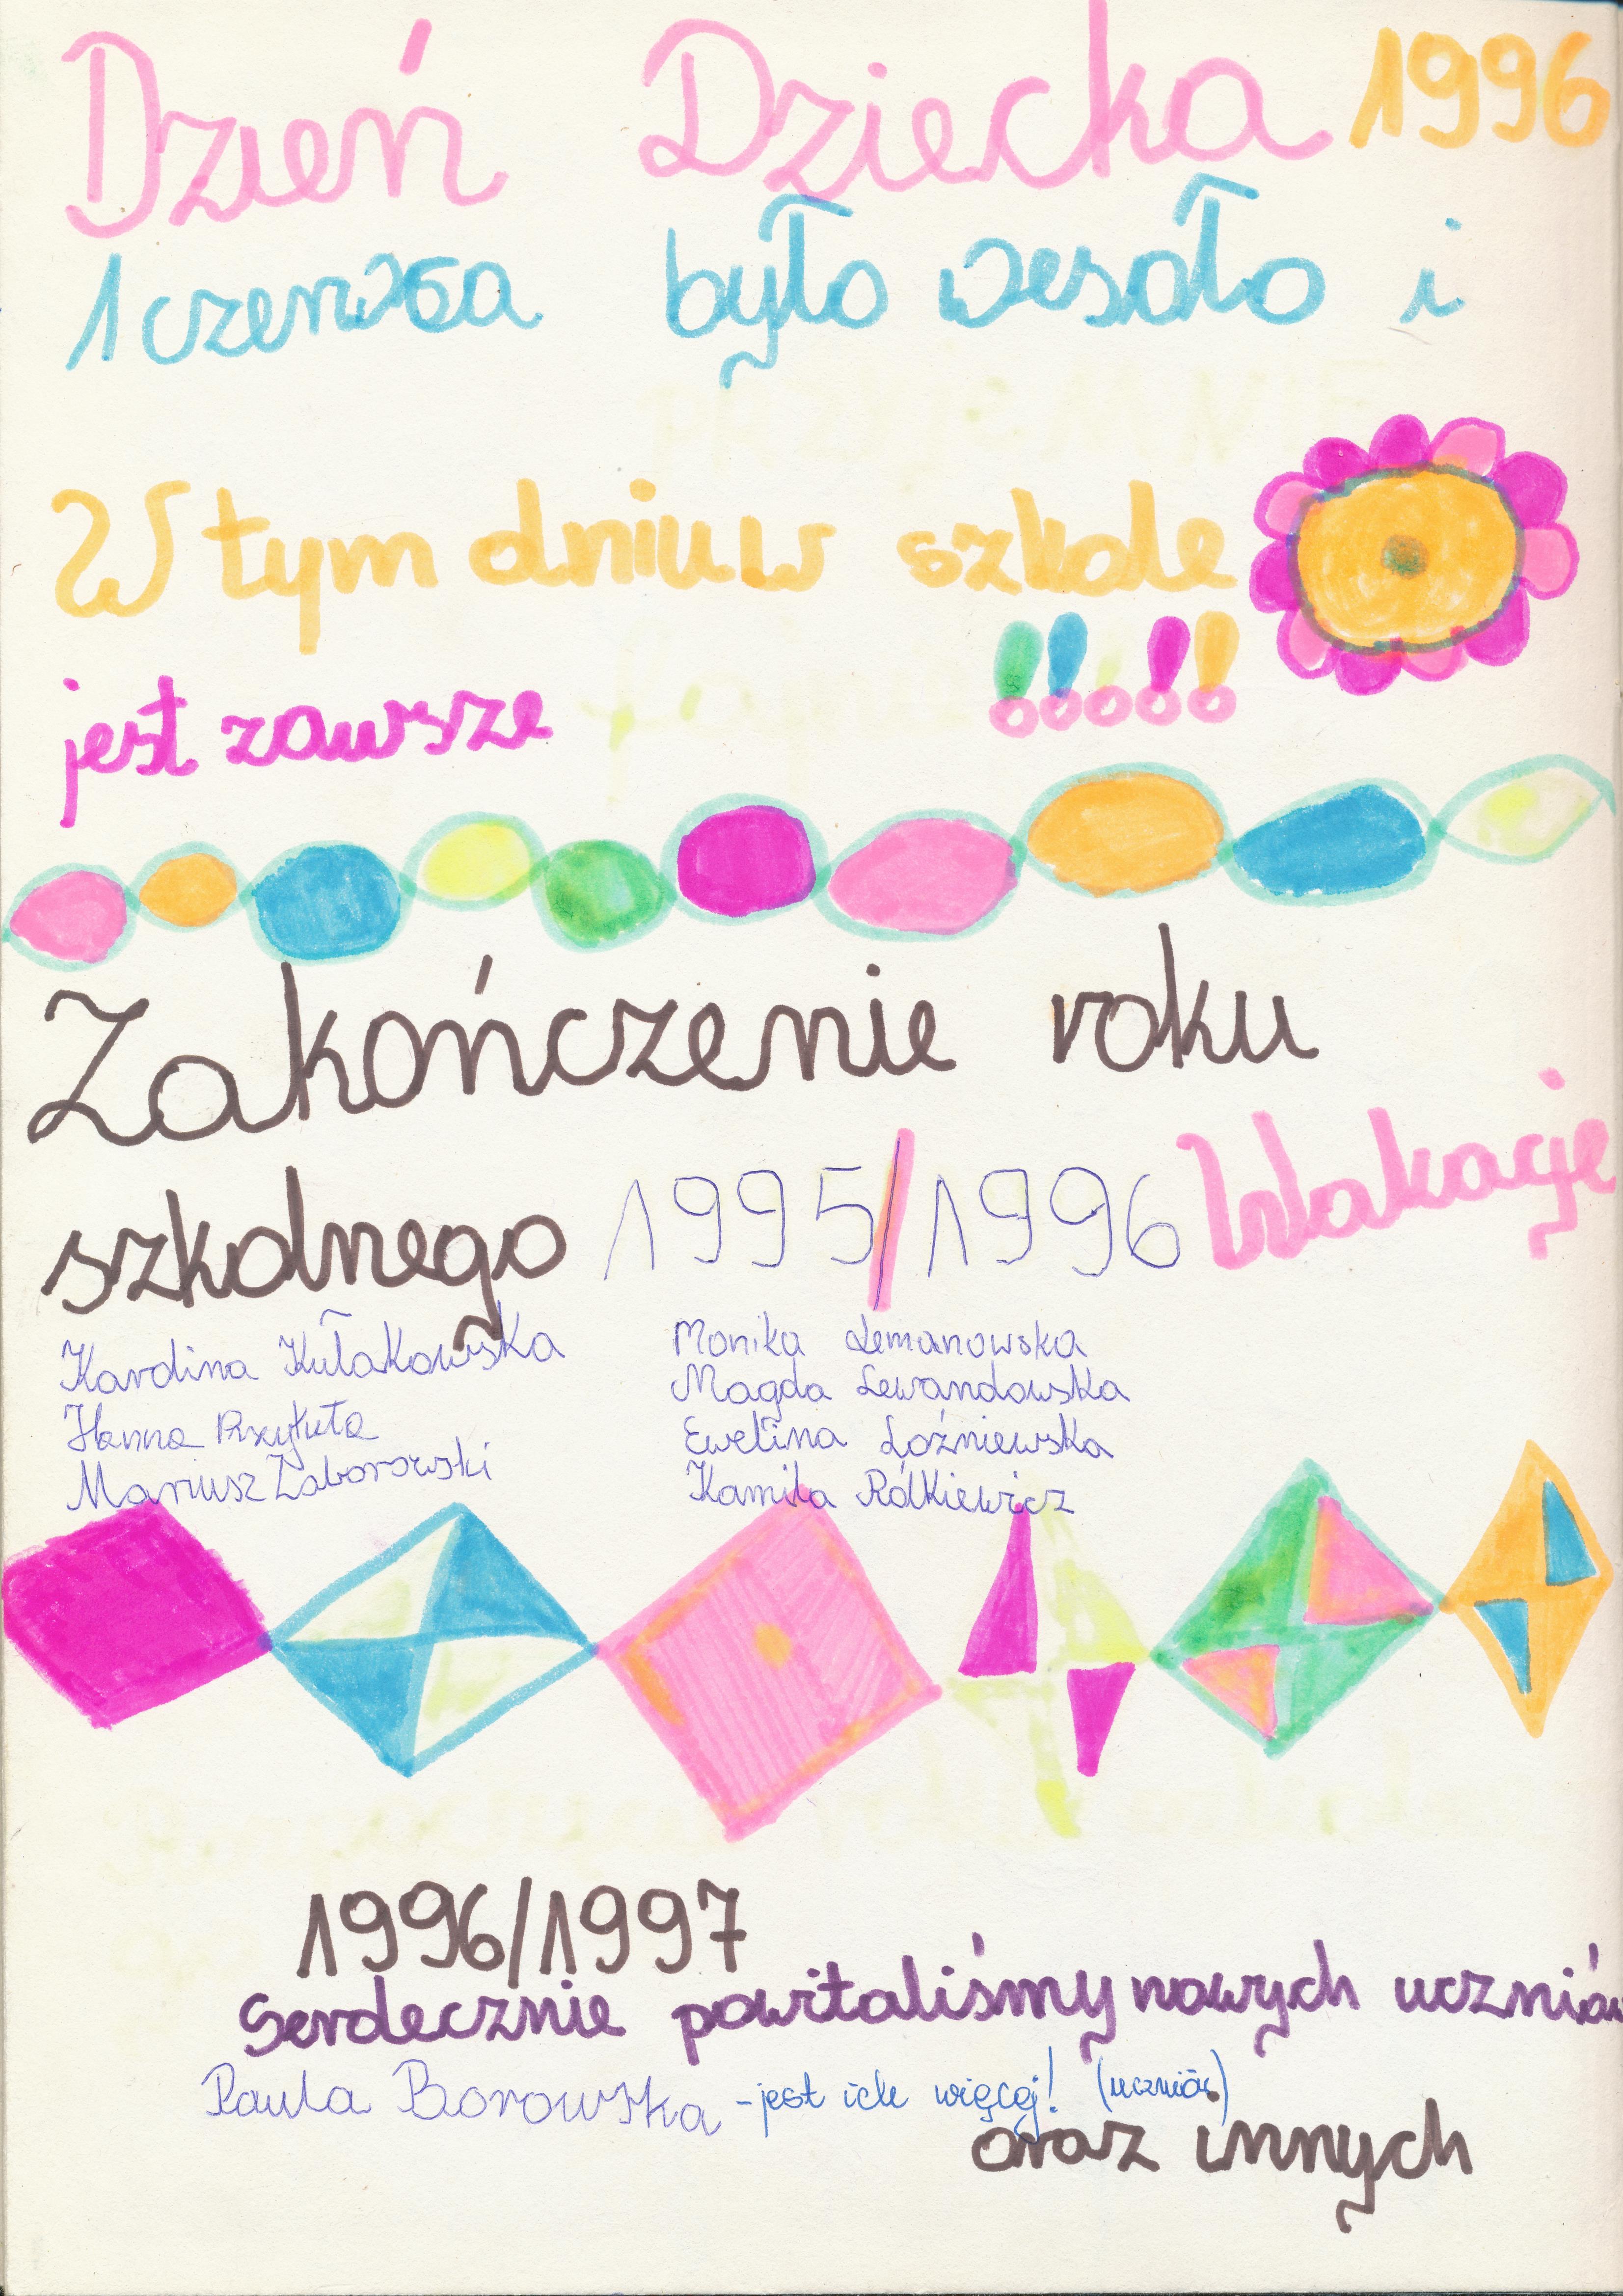 Dzień Dziecka 1996
1 czerwca było wesoło i
W tym dniu w szkole
jest zawsze !!!!!
Zakończenie roku
szkolnego 1995/1996 Wakacje
Karolina Kułakowska
Hanna Przykuta
Mariusz Zaborowski
Monika Lemanowska
Magda Lewandowska
Ewelina Łoźniewska
Kamila Rólkiewicz
1996/1997
Serdecznie powitaliśmy nowych uczniów
Paula Borowska - jest ich więcej! (uczniów)
oraz innych